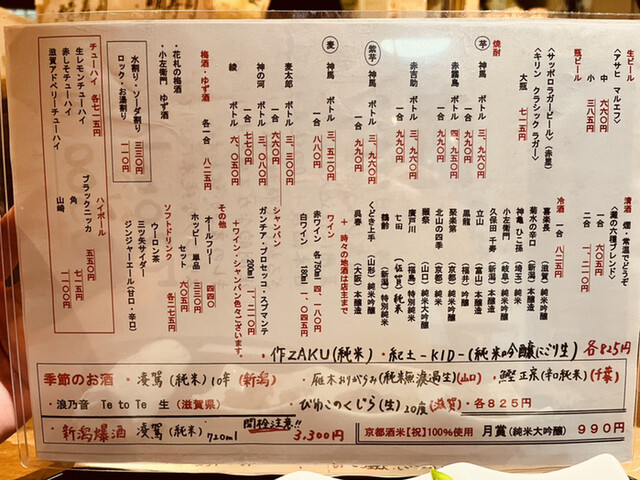 生ビール
〈アサヒ マルエフ〉
中 六六〇円
小 三八五円
瓶ビール
〈サッポロラガービール〉(赤星)
〈キリン クラシックラガー〉
大瓶 七一五円
焼酎
芋 神馬 ボトル 三、九六〇円
一合 九九〇円
赤霧島 ボトル 四、九五〇円
一合 九九〇円
赤吉助 ボトル 三、九六〇円
一合 九九〇円
紫芋 神馬 ボトル 三、九六〇円
一合 九九〇円
麦 神馬 ボトル 三、五二〇円
一合 八八〇円
麦太郎 ボトル 三、三〇〇円
一合 六六〇円
神の河 ボトル 三、〇八〇円
一合 七七〇円
綾 ボトル 六、〇五〇円
梅酒・ゆず酒
各一合 八二五円
・花札の梅酒
・小左衛門 ゆず酒
水割り・ソーダ割り 三三〇円
ロック・お湯割り 一一〇円
チューハイ 各七一五円
生レモンチューハイ
赤しそチューハイ
滋賀アドベリーチューハイ
清酒 燗・常温でどうぞ
〈灘の六種ブレンド〉
一合 六〇五円
二合 一、二一〇円
冷酒 一合 八二五円
喜楽長 (滋賀) 純米吟醸
菊水の辛口 (新潟) 本醸造
神亀 ひこ孫 (埼玉) 純米
小左衛門 (岐阜) 純米吟醸
久保田 千寿 (新潟) 本醸造
立山 (富山) 本醸造
黒龍 (福井) 吟醸
聚楽第 (京都) 純米吟醸
北山の四季 (京都) 純米
獺祭 (山口) 純米大吟醸
廣戸川 (福島) 特別純米
七田 (佐賀) 純米
鶴齢 (新潟) 特別純米
くどき上手 (山形) 純米吟醸
呉春 (大阪) 本醸造
＋ 時々の地酒は店主まで
ワイン
赤ワイン 各750ml 四、一八〇円
白ワイン 180ml 一、〇四五円
シャンパン
ガンチア・プロセッコ・スプマンテ
200ml 二、二一〇円
＋ワイン・シャンパン色々ございます。
その他
オールフリー 四四〇
ホッピー 単品 三三〇円
セット 六〇五円
ソフトドリンク 各二七五円
ウーロン茶
三ツ矢サイダー
ジンジャーエール(甘口・辛口)
ハイボール
ブラックニッカ 五五〇円
角 七一五円
山崎 一、一〇〇円
・作ZAKU(純米) ・紀土-KID-(純米吟醸にごり生) 各825円
季節のお酒 ・凌駕(純米)10年(新潟) ・雁木おりがらみ(純米無濾過生)(山口) ・鰹 正宗(辛口純米)(千葉)
・浪乃音 Te to Te 生 (滋賀県) ・びわこのくじら(生)20度(滋賀) ・各825円
・新潟爆酒 凌駕(純米) 720ml 開栓注意!! 3,300円
京都酒米【祝】100%使用 月賞(純米大吟醸) 990円